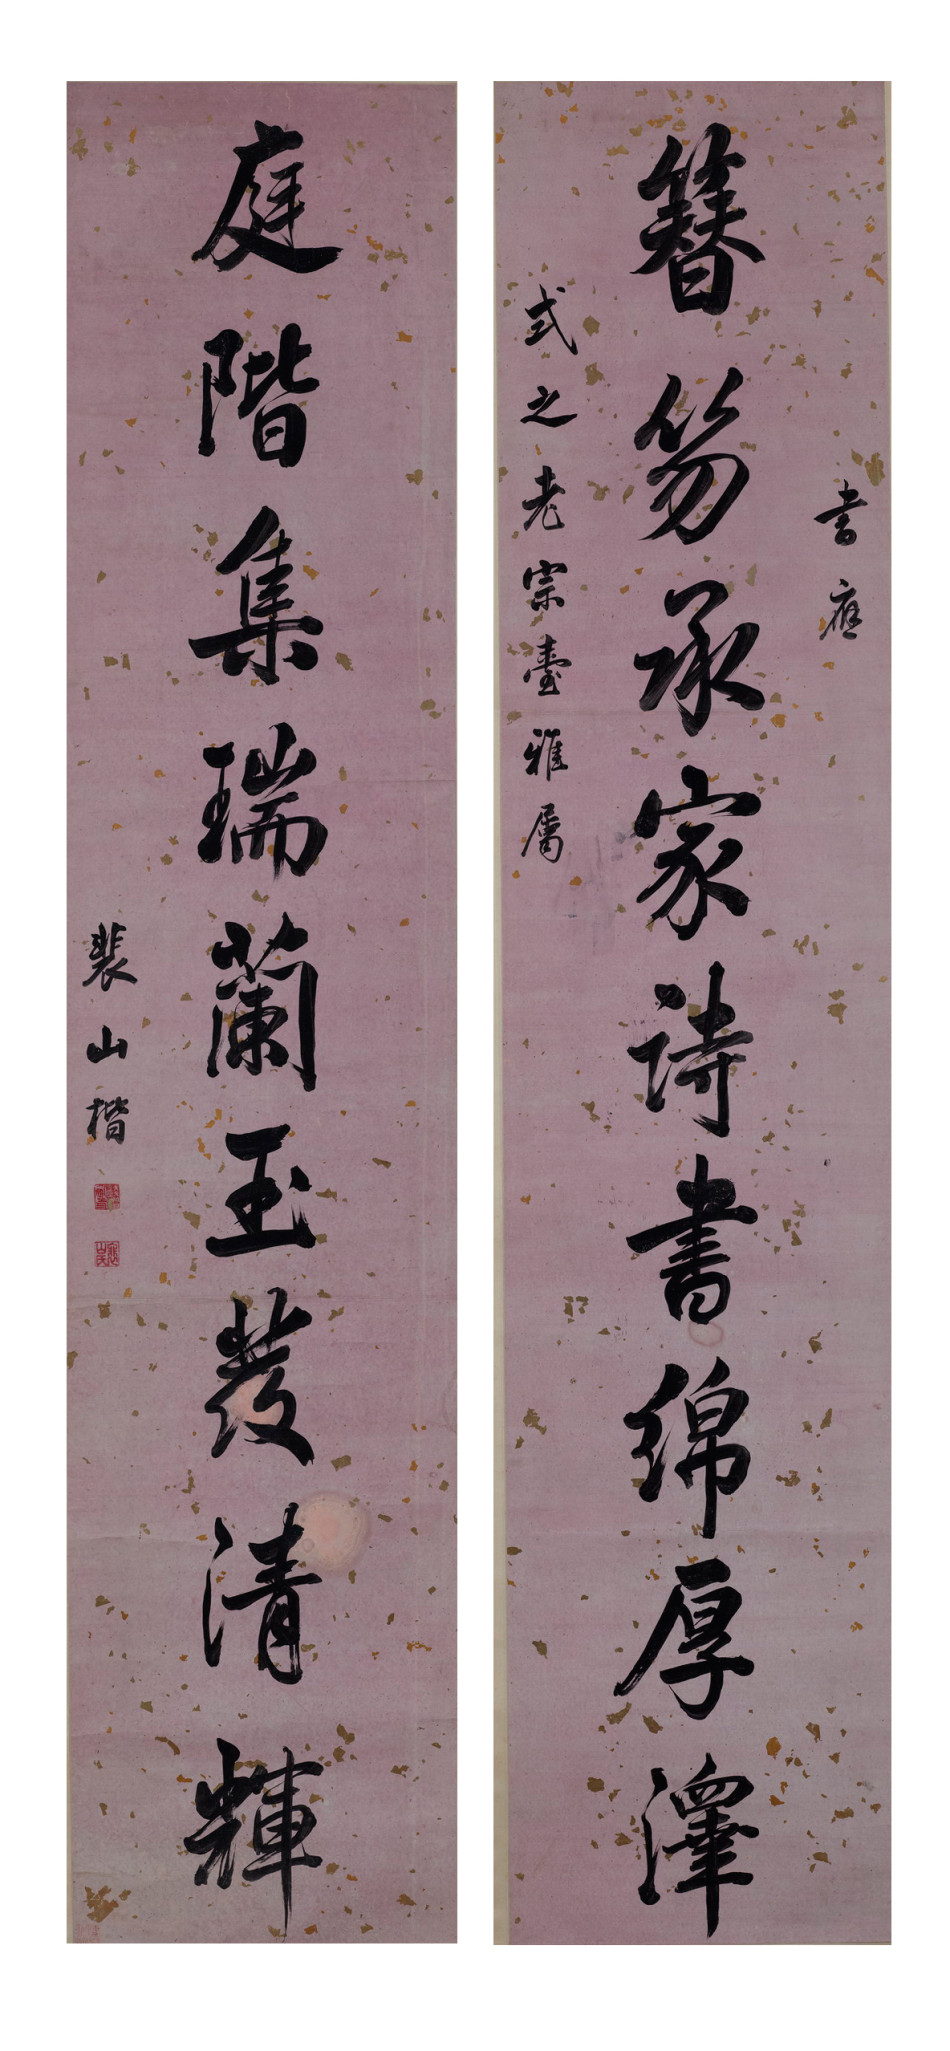 書應
簪笏承家詩書綿厚澤
式之老宗臺雅屬
庭階集瑞蘭玉發清輝
裴山楷